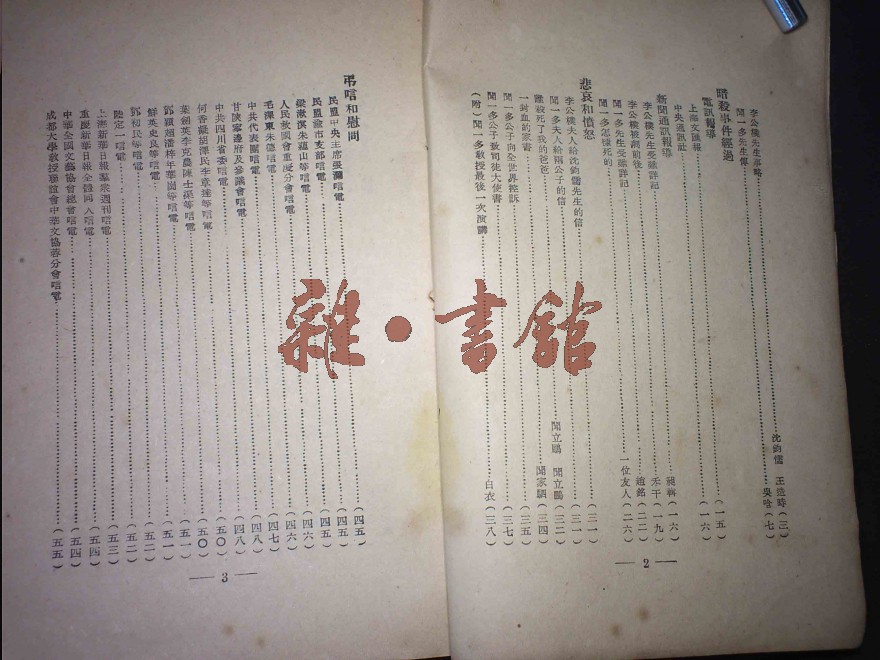 李公樸先生事略 沈鈞儒 王造時(三)
聞一多先生傳 吳晗(七)
暗殺事件經過 (一五)
電訊報導 (一六)
上海文匯報
中央通訊社
新聞通訊報導
李公樸先生受難詳記 (一六)
李公樸被刺前後 禾千(一九)
聞一多先生受難詳記 趙銘(二二)
聞一多怎樣死的 一位友人(二六)
悲哀和憤怒 (三一)
李公樸夫人給沈鈞儒先生的信 (三一)
聞一多夫人給兩公子的信 (三二)
誰殺死了我的爸爸 聞立鵰 聞立鵬
一封血的家書 聞家駟(三四)
聞一多公子向全世界控訴 (三五)
聞一多公子致司徒大使書 (三七)
(附)聞一多教授最後一次演講 白衣(三八)
— 2 —
弔唁和慰問 (四五)
民盟中央主席張瀾唁電 (四五)
民盟渝市支部唁電 (四五)
梁漱溟朱蘊山等唁電 (四六)
人民救國會重慶分會唁電 (四六)
毛澤東朱德唁電 (四七)
中共代表團唁電 (四八)
甘陝寧邊府及參議會唁電 (四八)
中共四川省委唁電 (五〇)
何香凝胡澤民李章達等唁電 (五〇)
葉劍英李克農陳士榘等唁電 (五一)
鄧穎超潘梓年華崗等唁電 (五一)
鮮英史良等唁電 (五二)
鄧初民等唁電 (五二)
陸定一唁電 (五三)
上海新華日報羣衆週刊唁電 (五四)
重慶新華日報全體同人唁電 (五四)
中華全國文藝協會總會唁電 (五五)
成都大學教授聯誼會中華文協蓉分會唁電 (五五)
— 3 —
雜·書館